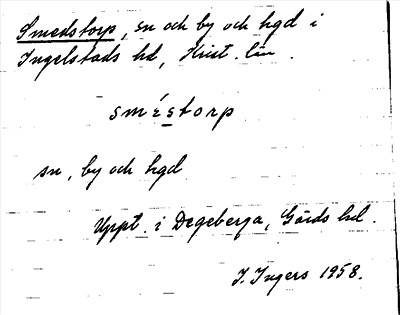 Smedstorp, sn och by och hgd i
Ingelstads hd, Krist. län.
sméstorp
sn, by och hgd
Uppt. i Degeberga, Gärds hd.
I. Ingers 1958.